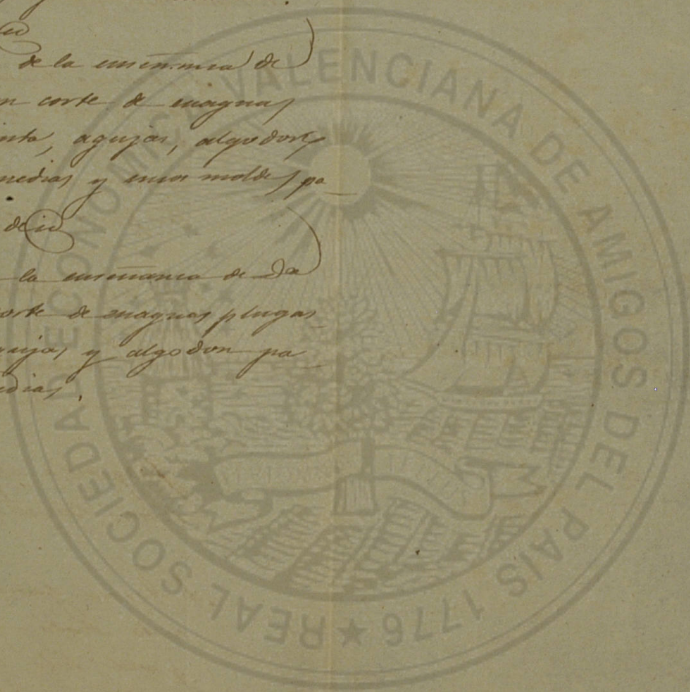 de la enseñanza de
corte de enaguas
agujas, algodon
medias y unos moldes pa
la enseñanza de
corte de enaguas
y algodon pa
medias.
REAL SOCIEDAD ECONOMICA VALENCIANA DE AMIGOS DEL PAIS 1776